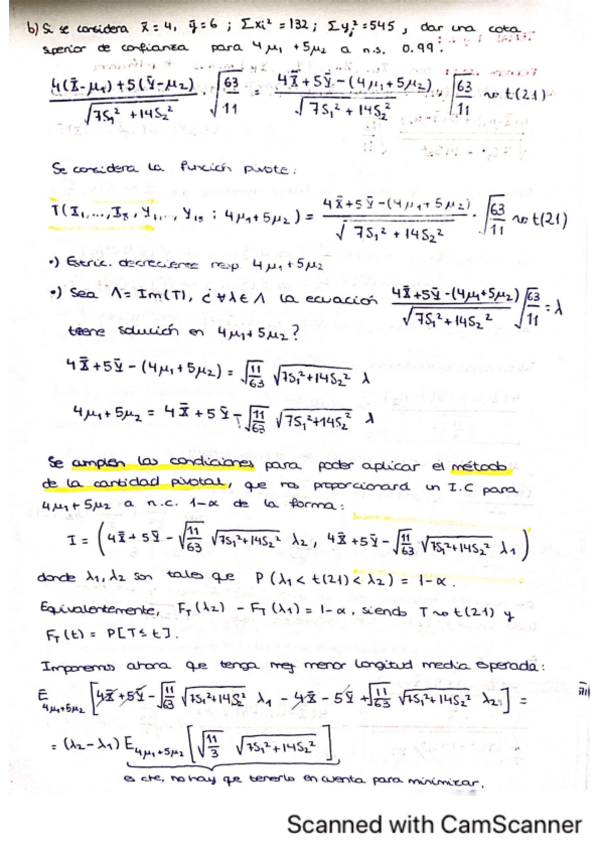 b) Si se considera x̄ = 4, ȳ = 6 ; Σxi² = 132 ; Σyj² = 545 , dar una cota
superior de confianza para 4μ1 + 5μ2 a n.s. 0.99.
4(X̄-μ1) + 5(Ȳ-μ2) / √(7S1² + 14S2²) · √(63/11) = 4X̄ + 5Ȳ - (4μ1 + 5μ2) / √(7S1² + 14S2²) √(63/11) ~ t(21)
Se considera la función pivote:
T(X1,..., X8, Y1,..., Y15 ; 4μ1 + 5μ2) = 4X̄ + 5Ȳ - (4μ1 + 5μ2) / √(7S1² + 14S2²) · √(63/11) ~ t(21)
•) Estric. decreciente resp. 4μ1 + 5μ2
•) Sea Λ = Im(T), ¿ ∀λ ∈ Λ la ecuación 4X̄ + 5Ȳ - (4μ1 + 5μ2) / √(7S1² + 14S2²) √(63/11) = λ
tiene solución en 4μ1 + 5μ2 ?
4X̄ + 5Ȳ - (4μ1 + 5μ2) = √(11/63) √(7S1² + 14S2²) λ
4μ1 + 5μ2 = 4X̄ + 5Ȳ - √(11/63) √(7S1² + 14S2²) λ
Se cumplen las condiciones para poder aplicar el método
de la cantidad pivotal, que nos proporcionará un I.C para
4μ1 + 5μ2 a n.c. 1-α de la forma:
I = (4X̄ + 5Ȳ - √(11/63) √(7S1² + 14S2²) λ2 , 4X̄ + 5Ȳ - √(11/63) √(7S1² + 14S2²) λ1)
donde λ1, λ2 son tales que P(λ1 < t(21) < λ2) = 1-α.
Equivalentemente, FT(λ2) - FT(λ1) = 1-α, siendo T ~ t(21) y
FT(t) = P[T ≤ t].
Imponemos ahora que tenga menor longitud media esperada:
E4μ1+5μ2 [4X̄ + 5Ȳ - √(11/63) √(7S1² + 14S2²) λ1 - 4X̄ - 5Ȳ + √(11/63) √(7S1² + 14S2²) λ2] =
= (λ2 - λ1) E4μ1+5μ2 [√(11/3) √(7S1² + 14S2²)]
es cte, no hay que tenerlo en cuenta para minimizar.
Scanned with CamScanner